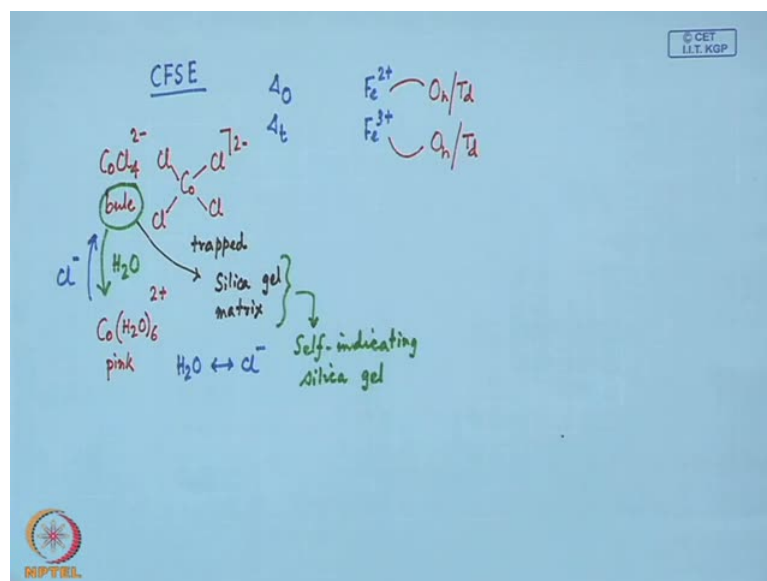 © CET
I.I.T. KGP
CFSE
Δo
Δt
Fe2+ Oh/Td
Fe3+ Oh/Td
CoCl4 2-
Cl Cl ]2-
Co
Cl Cl
bule
Cl- H2O
trapped
Silica gel
matrix
Co(H2O)6 2+
pink
H2O ↔ Cl-
Self-indicating
silica gel
NPTEL